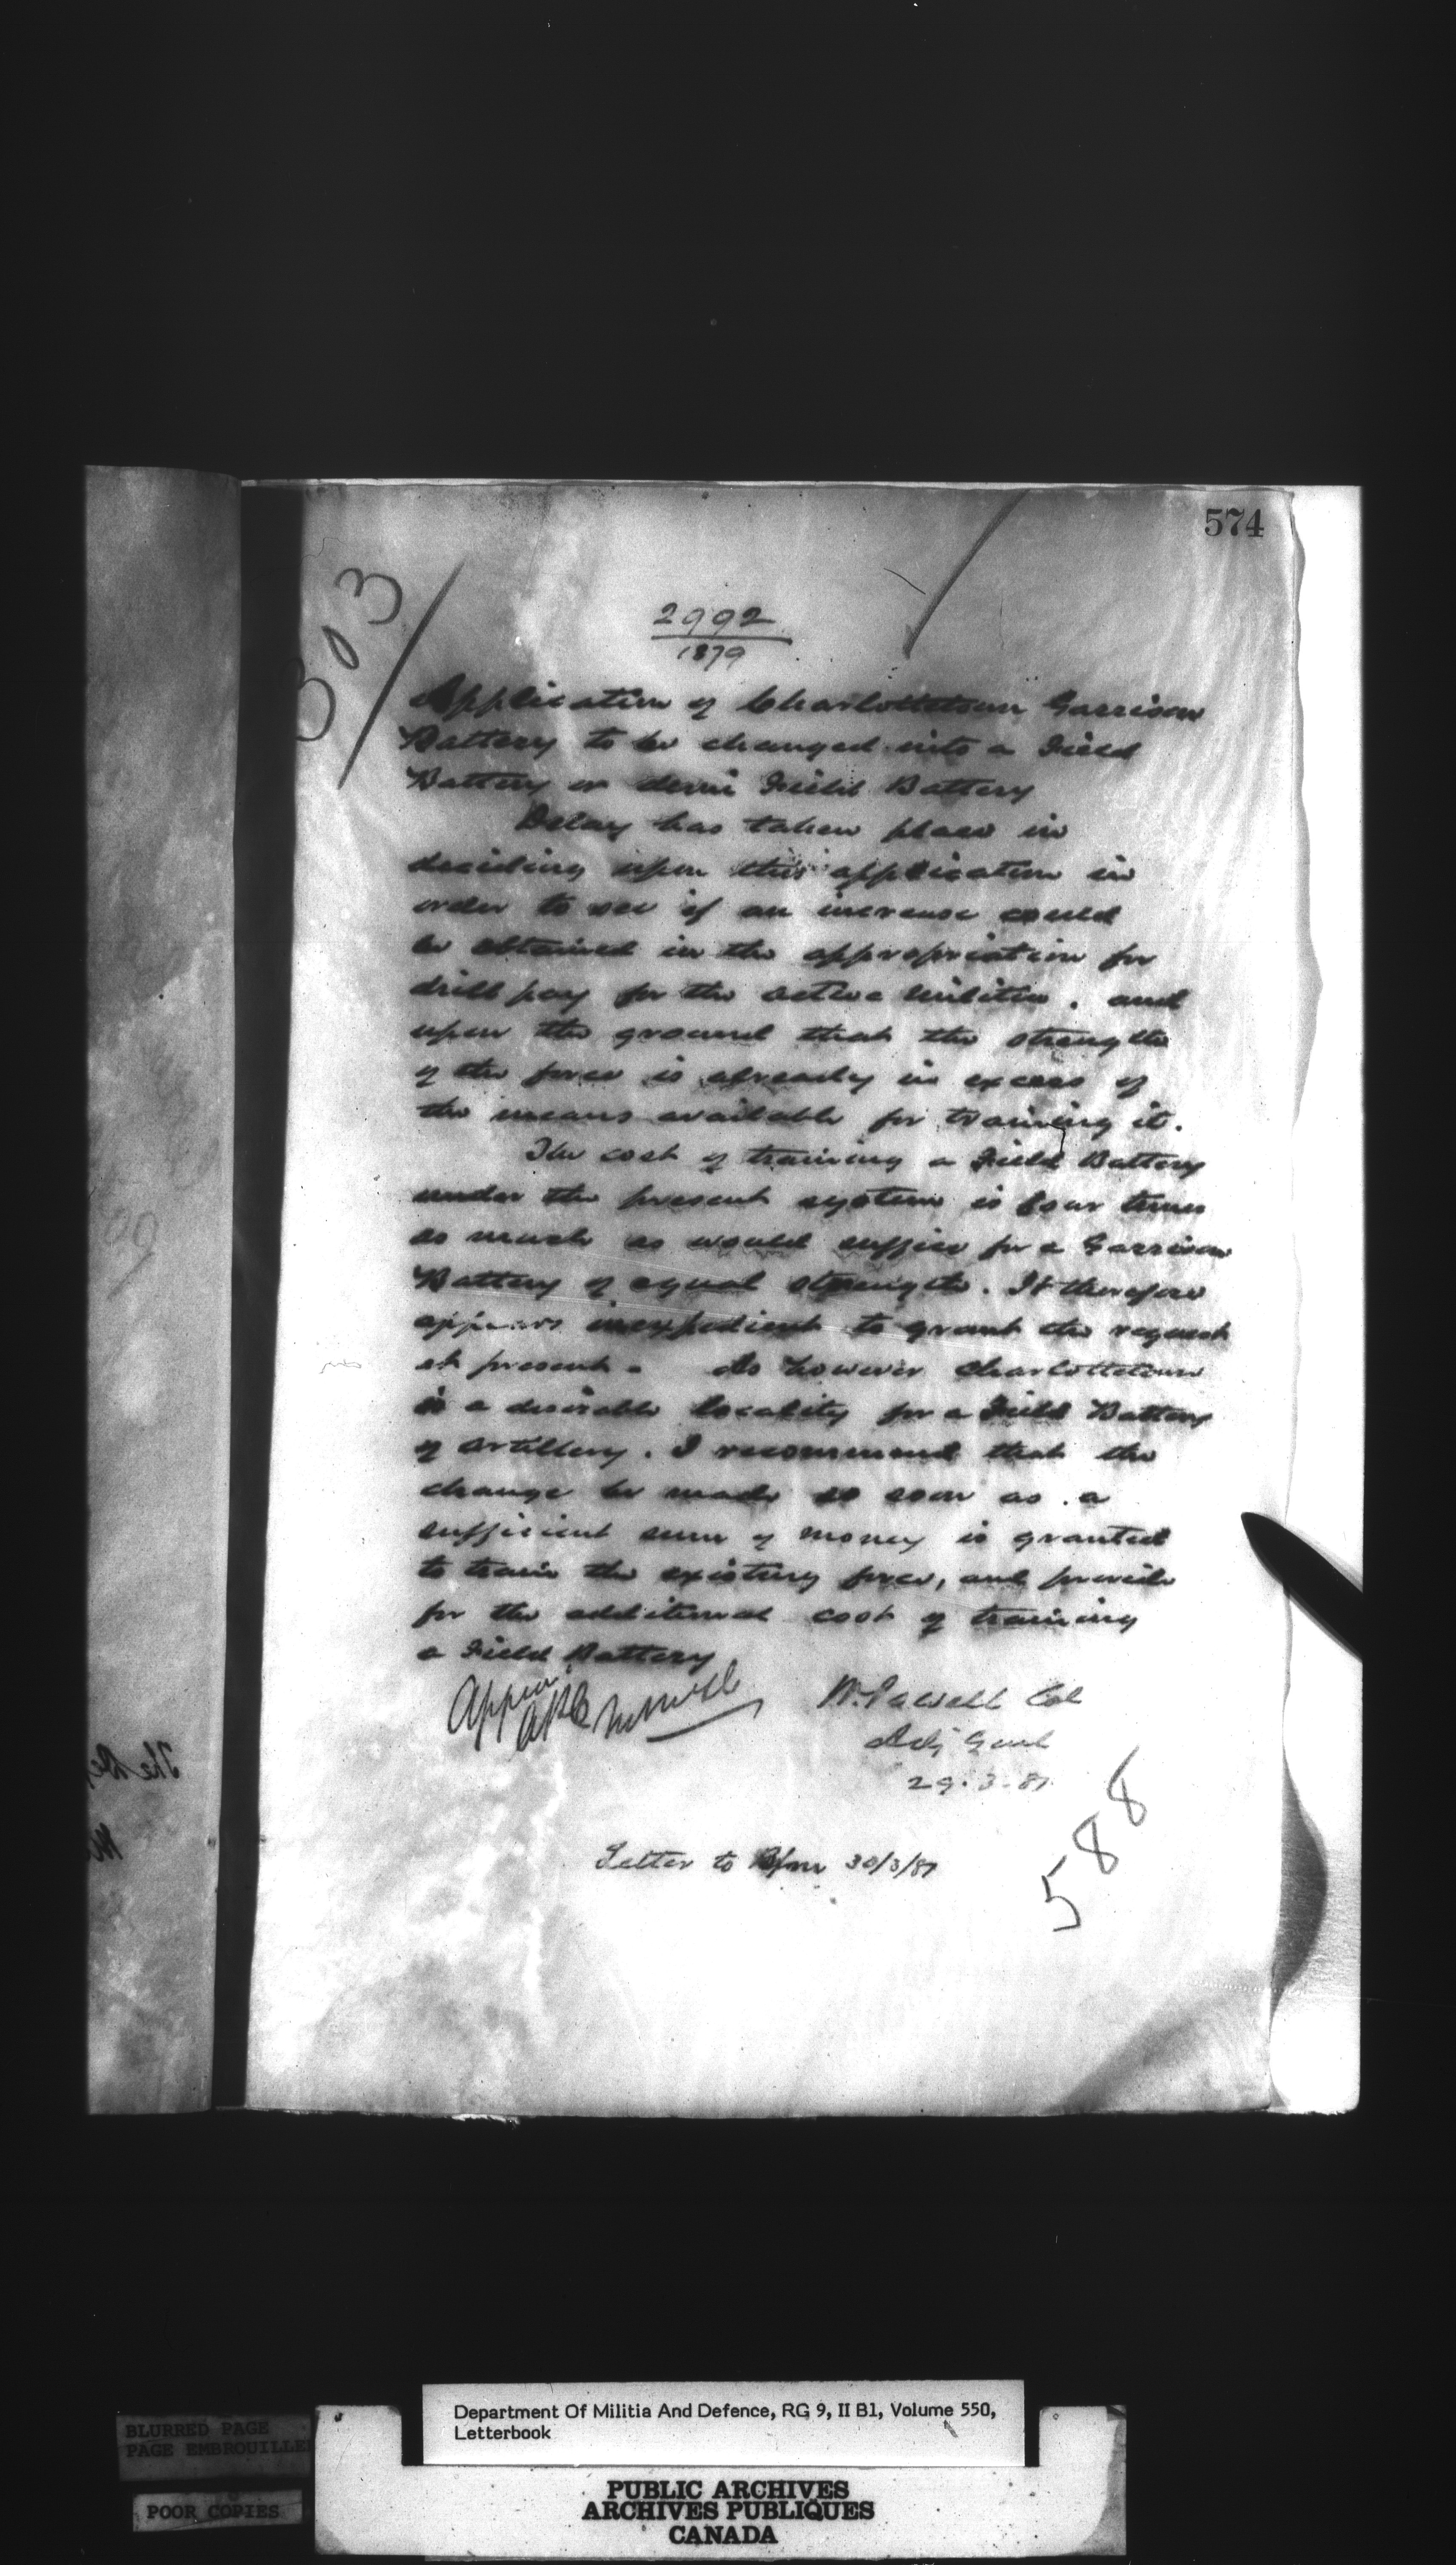 574
303
2992
1879
Application of Charlottetown Garrison
Battery to be changed into a Field
Battery or demi Field Battery
Delay has taken place in
deciding upon this application in
order to see if an increase could
be obtained in the appropriation for
drill pay for the active Militia. and
upon the ground that the strength
of the force is already in excess of
the means available for training it.
The cost of training a Field Battery
under the present system is four times
as much as would suffice for a Garrison
Battery of equal strength. It therefore
appears inexpedient to grant the request
at present. As however Charlottetown
is a desirable locality for a Field Battery
of Artillery. I recommend that the
change be made so soon as a
sufficient sum of money is granted
to train the existing force, and provide
for the additional cost of training
a Field Battery
W. Powell Col
Adj Genl
29.3.81
Letter to 30/3/81
588
The De
BLURRED PAGE
PAGE EMBROUILLE
POOR COPIES
Department Of Militia And Defence, RG 9, II B1, Volume 550,
Letterbook
PUBLIC ARCHIVES
ARCHIVES PUBLIQUES
CANADA